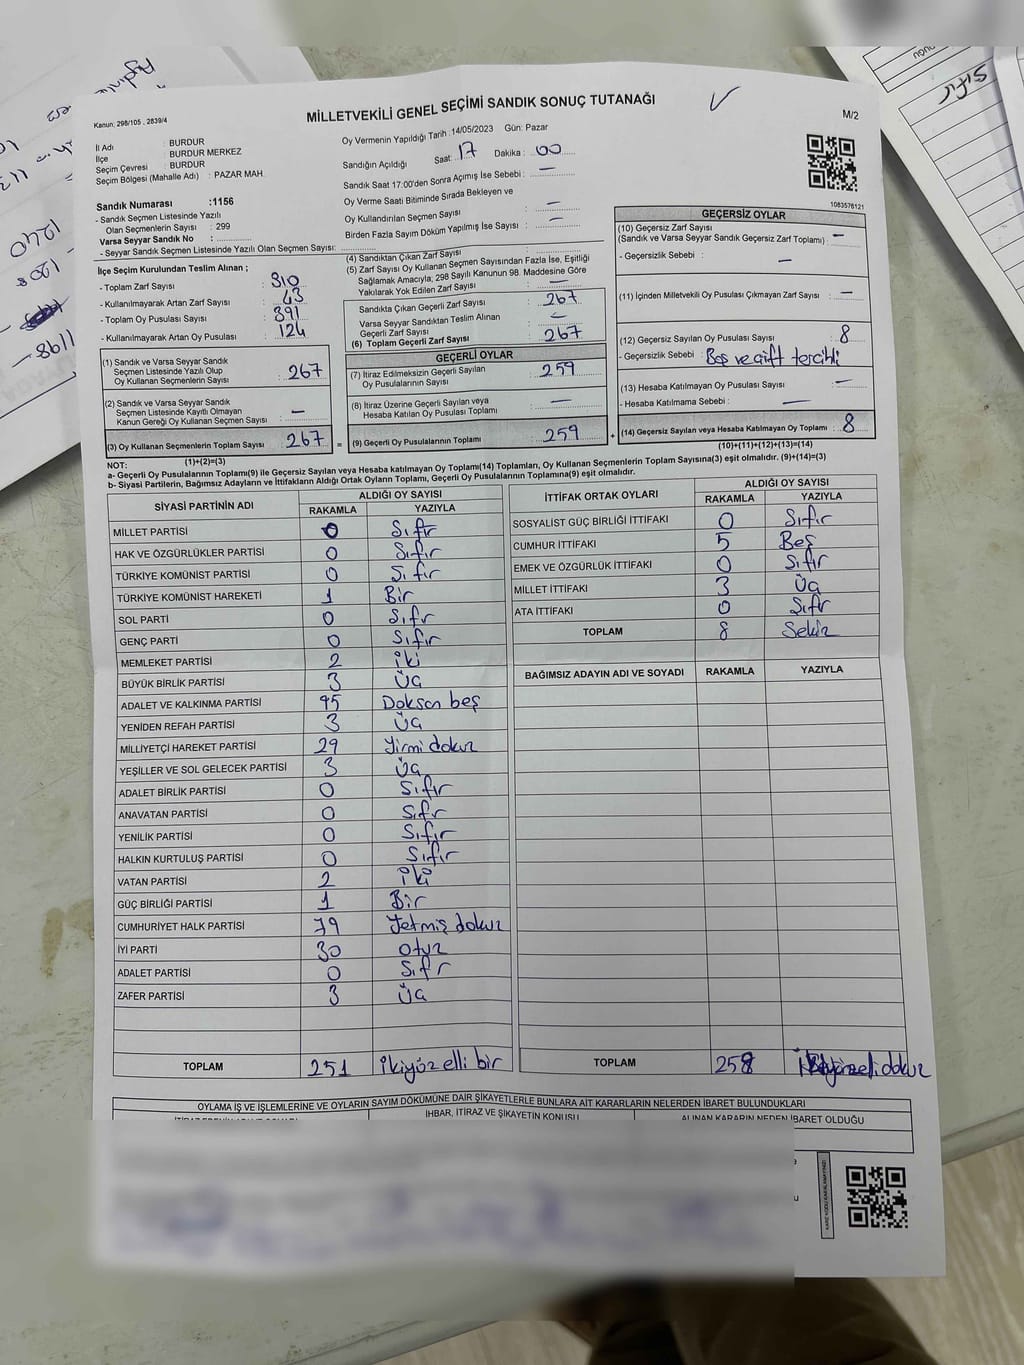 MİLLETVEKİLİ GENEL SEÇİMİ SANDIK SONUÇ TUTANAĞI
Kanun: 298/105 , 2839/4
M/2
İl Adı : BURDUR
İlçe : BURDUR MERKEZ
Seçim Çevresi : BURDUR
Seçim Bölgesi (Mahalle Adı) : PAZAR MAH.
Oy Vermenin Yapıldığı Tarih : 14/05/2023 Gün: Pazar
Sandığın Açıldığı Saat: 17 Dakika : 00
Sandık Saat 17:00'den Sonra Açımış İse Sebebi : —
Oy Verme Saati Bitiminde Sırada Bekleyen ve
Oy Kullandırılan Seçmen Sayısı : —
Birden Fazla Sayım Döküm Yapılmış İse Sayısı : —
Sandık Numarası :1156
- Sandık Seçmen Listesinde Yazılı
Olan Seçmenlerin Sayısı : 299
Varsa Seyyar Sandık No :
- Seyyar Sandık Seçmen Listesinde Yazılı Olan Seçmen Sayısı:
1083576121
İlçe Seçim Kurulundan Teslim Alınan ;
- Toplam Zarf Sayısı : 310
- Kullanılmayarak Artan Zarf Sayısı : 43
- Toplam Oy Pusulası Sayısı : 391
- Kullanılmayarak Artan Oy Pusulası : 124
(1) Sandık ve Varsa Seyyar Sandık
Seçmen Listesinde Yazılı Olup
Oy Kullanan Seçmenlerin Sayısı : 267
(2) Sandık ve Varsa Seyyar Sandık
Seçmen Listesinde Kayıtlı Olmayan
Kanun Gereği Oy Kullanan Seçmen Sayısı : —
(3) Oy Kullanan Seçmenlerin Toplam Sayısı : 267 =
(1)+(2)=(3)
(4) Sandıktan Çıkan Zarf Sayısı
(5) Zarf Sayısı Oy Kullanan Seçmen Sayısından Fazla İse, Eşitliği
Sağlamak Amacıyla; 298 Sayılı Kanunun 98. Maddesine Göre
Yakılarak Yok Edilen Zarf Sayısı : —
Sandıkta Çıkan Geçerli Zarf Sayısı : 267
Varsa Seyyar Sandıktan Teslim Alınan
Geçerli Zarf Sayısı : —
(6) Toplam Geçerli Zarf Sayısı : 267
GEÇERLİ OYLAR
(7) İtiraz Edilmeksizin Geçerli Sayılan
Oy Pusulalarının Sayısı : 259
(8) İtiraz Üzerine Geçerli Sayılan veya
Hesaba Katılan Oy Pusulası Toplamı : —
(9) Geçerli Oy Pusulalarının Toplamı : 259 +
GEÇERSİZ OYLAR
(10) Geçersiz Zarf Sayısı
(Sandık ve Varsa Seyyar Sandık Geçersiz Zarf Toplamı) : —
- Geçersizlik Sebebi : —
(11) İçinden Milletvekili Oy Pusulası Çıkmayan Zarf Sayısı : —
(12) Geçersiz Sayılan Oy Pusulası Sayısı : 8
- Geçersizlik Sebebi : Boş ve çift tercihli
(13) Hesaba Katılmayan Oy Pusulası Sayısı : —
- Hesaba Katılmama Sebebi : —
(14) Geçersiz Sayılan veya Hesaba Katılmayan Oy Toplamı : 8
(10)+(11)+(12)+(13)=(14)
NOT:
a- Geçerli Oy Pusulalarının Toplamı(9) ile Geçersiz Sayılan veya Hesaba katılmayan Oy Toplamı(14) Toplamları, Oy Kullanan Seçmenlerin Toplam Sayısına(3) eşit olmalıdır. (9)+(14)=(3)
b- Siyasi Partilerin, Bağımsız Adayların ve İttifakların Aldığı Ortak Oyların Toplamı, Geçerli Oy Pusulalarının Toplamına(9) eşit olmalıdır.
SİYASİ PARTİNİN ADI ALDIĞI OY SAYISI
RAKAMLA YAZIYLA
MİLLET PARTİSİ 0 Sıfır
HAK VE ÖZGÜRLÜKLER PARTİSİ 0 Sıfır
TÜRKİYE KOMÜNİST PARTİSİ 0 Sıfır
TÜRKİYE KOMÜNİST HAREKETİ 1 Bir
SOL PARTİ 0 Sıfır
GENÇ PARTİ 0 Sıfır
MEMLEKET PARTİSİ 2 iki
BÜYÜK BİRLİK PARTİSİ 3 Üç
ADALET VE KALKINMA PARTİSİ 95 Doksan beş
YENİDEN REFAH PARTİSİ 3 Üç
MİLLİYETÇİ HAREKET PARTİSİ 29 Yirmi dokuz
YEŞİLLER VE SOL GELECEK PARTİSİ 3 Üç
ADALET BİRLİK PARTİSİ 0 Sıfır
ANAVATAN PARTİSİ 0 Sıfır
YENİLİK PARTİSİ 0 Sıfır
HALKIN KURTULUŞ PARTİSİ 0 Sıfır
VATAN PARTİSİ 2 iki
GÜÇ BİRLİĞİ PARTİSİ 1 Bir
CUMHURİYET HALK PARTİSİ 79 Yetmiş dokuz
İYİ PARTİ 30 otuz
ADALET PARTİSİ 0 Sıfır
ZAFER PARTİSİ 3 Üç
TOPLAM 251 ikiyüz elli bir
İTTİFAK ORTAK OYLARI ALDIĞI OY SAYISI
RAKAMLA YAZIYLA
SOSYALİST GÜÇ BİRLİĞİ İTTİFAKI 0 Sıfır
CUMHUR İTTİFAKI 5 Beş
EMEK VE ÖZGÜRLÜK İTTİFAKI 0 Sıfır
MİLLET İTTİFAKI 3 Üç
ATA İTTİFAKI 0 Sıfır
TOPLAM 8 Sekiz
BAĞIMSIZ ADAYIN ADI VE SOYADI RAKAMLA YAZIYLA
TOPLAM 258
OYLAMA İŞ VE İŞLEMLERİNE VE OYLARIN SAYIM DÖKÜMÜNE DAİR ŞİKAYETLERLE BUNLARA AİT KARARLARIN NELERDEN İBARET BULUNDUKLARI
İHBAR, İTİRAZ VE ŞİKAYETİN KONUSU
ALINAN KARARIN NEDEN İBARET OLDUĞU